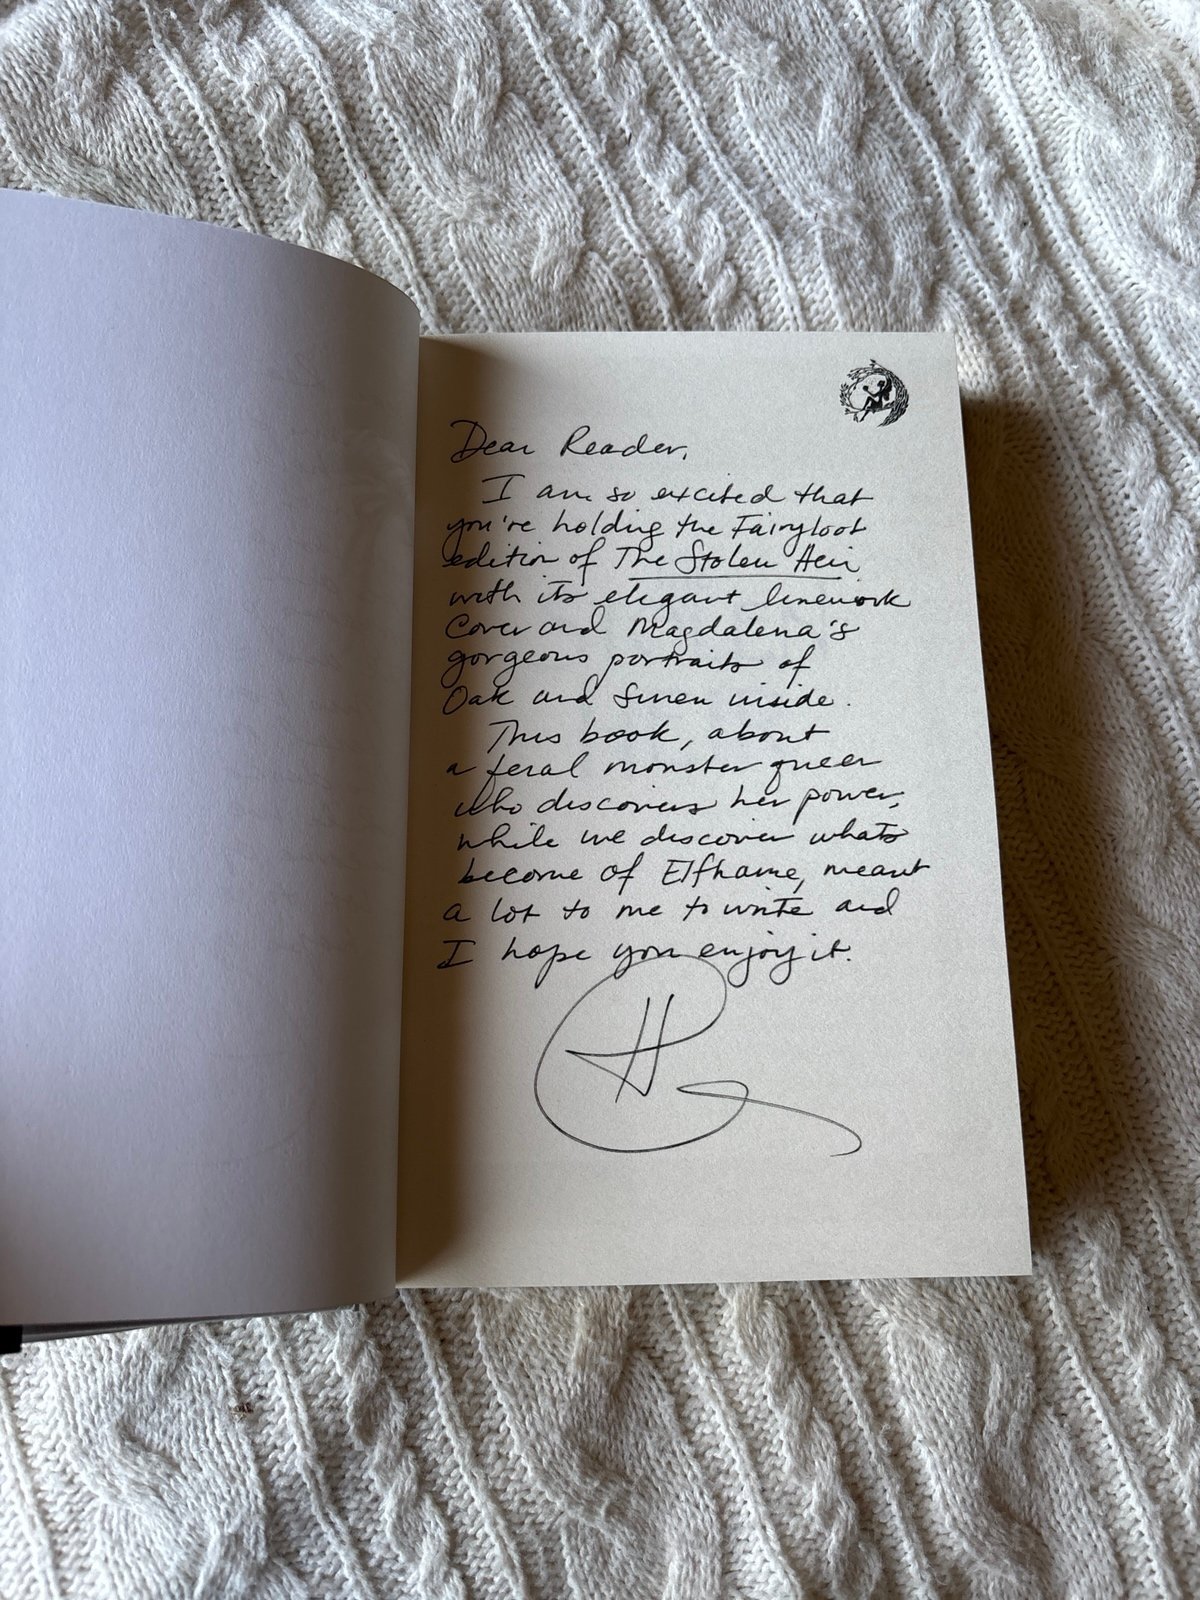 Dear Reader,
I am so excited that
you're holding the Fairyloot
edition of The Stolen Heir
with its elegant linework
cover and Magdalena's
gorgeous portraits of
Oak and Suren inside.
This book, about
a feral monster queen
who discovers her power,
while we discover whats
become of Elfhame, meant
a lot to me to write and
I hope you enjoy it.